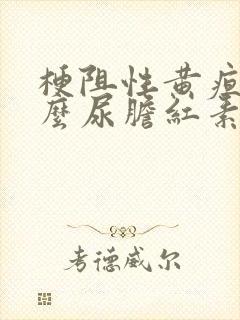 梗阻性黄疸
麼尿膽紅素
考德威尔